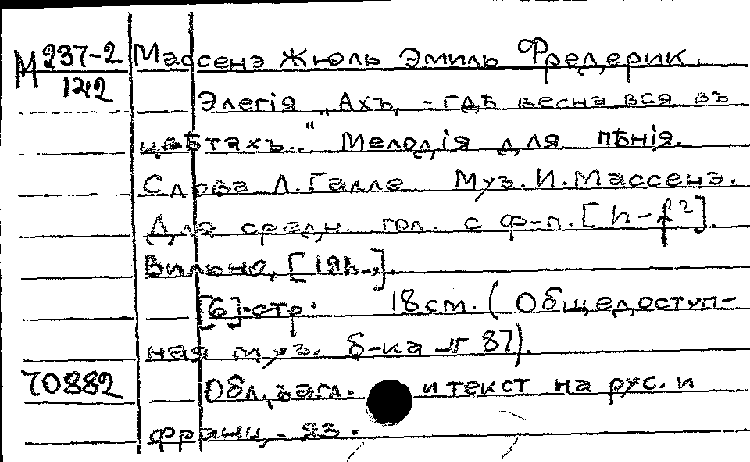 М 237-2 Массенэ Жюль Эмиль Фредерик.
142 Элегія „Ахъ, - гдѣ весна вся въ
цвѣтахъ.." Мелодія для пѣнія.
Слова Л. Галле. Муз. И. Массенэ.
Для средн. гол. с ф-п. [h-f²].
Вильна,
[6] стр. 18 см. (Общедоступ-
ная муз. б-ка № 87).
70882 Обл., загл. и текст на рус. и
франц. яз.